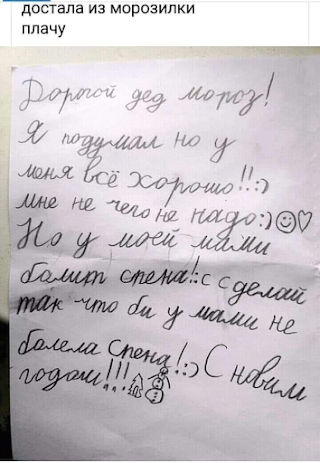 достала из морозилки
плачу
Дорогой дед мороз!
Я подумал но у
меня всё хорошо!!:)
мне не чего не надо:)☺♡
Но у моей мами
болит спена!:с сделай
так что би у мами не
болела Спена!:) С новим
годом!!!